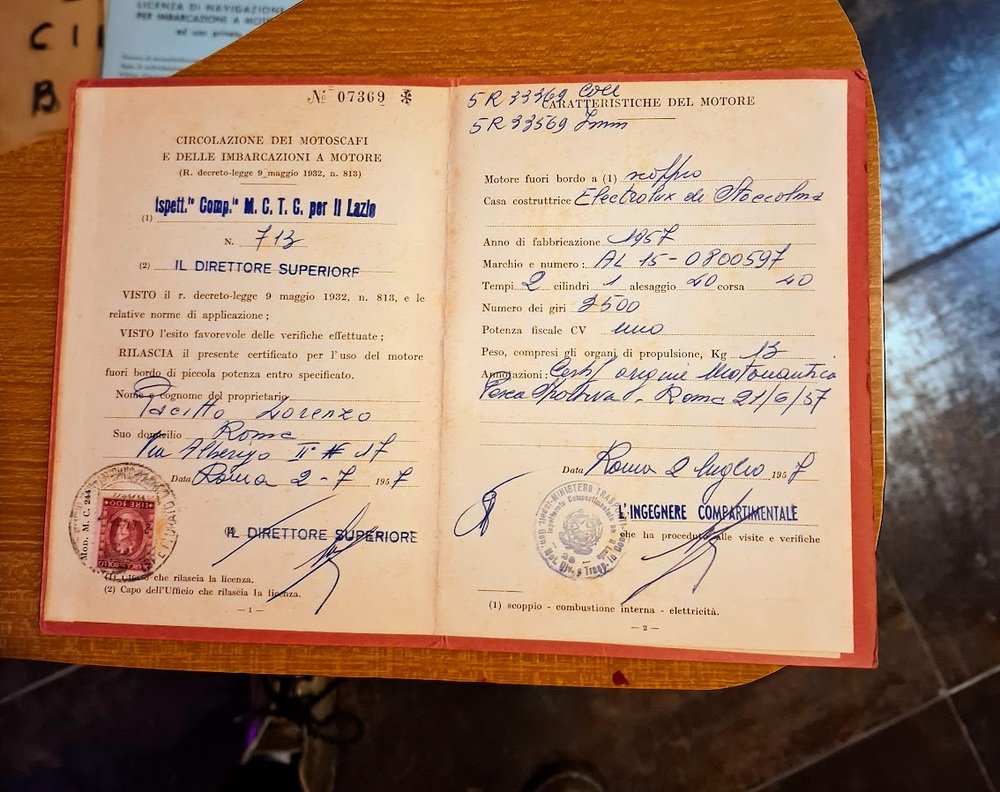 LICENZA DI NAVIGAZIONE
PER IMBARCAZIONE A MOTO
ad uso privato
C I
B
№ 07369 ✻
CIRCOLAZIONE DEI MOTOSCAFI
E DELLE IMBARCAZIONI A MOTORE
(R. decreto-legge 9 maggio 1932, n. 813)
(1) Ispett.to Comp.le M. C. T. C. per il Lazio
N. 713
(2) IL DIRETTORE SUPERIORE
VISTO il r. decreto-legge 9 maggio 1932, n. 813, e le
relative norme di applicazione;
VISTO l'esito favorevole delle verifiche effettuate;
RILASCIA il presente certificato per l'uso del motore
fuori bordo di piccola potenza entro specificato.
Nome e cognome del proprietario
Lorenzo
Suo domicilio Roma
Via Alberigo II # 17
Data Roma 2-7 1957
IL DIRETTORE SUPERIORE
MOD. M. C. 244
LIRE 100
MARCA DA BOLLO
(1) che rilascia la licenza.
(2) Capo dell'Ufficio che rilascia la licenza.
— 1 —
5R 33369
5R 33569 Imm
CARATTERISTICHE DEL MOTORE
Motore fuori bordo a (1) scoppio
Casa costruttrice Electrolux de Stoccolma
Anno di fabbricazione 1957
Marchio e numero: AL 15-0800597
Tempi 2 cilindri 1 alesaggio 40 corsa 40
Numero dei giri 3500
Potenza fiscale CV uno
Peso, compresi gli organi di propulsione, Kg 13
Annotazioni: Cert/ origine Motonautica
Pesca Sportiva - Roma 21/6/57
Data Roma 2 luglio 1957
L'INGEGNERE COMPARTIMENTALE
che ha proceduto alle visite e verifiche
MINISTERO TRASPORTI
(1) scoppio - combustione interna - elettricità.
— 2 —